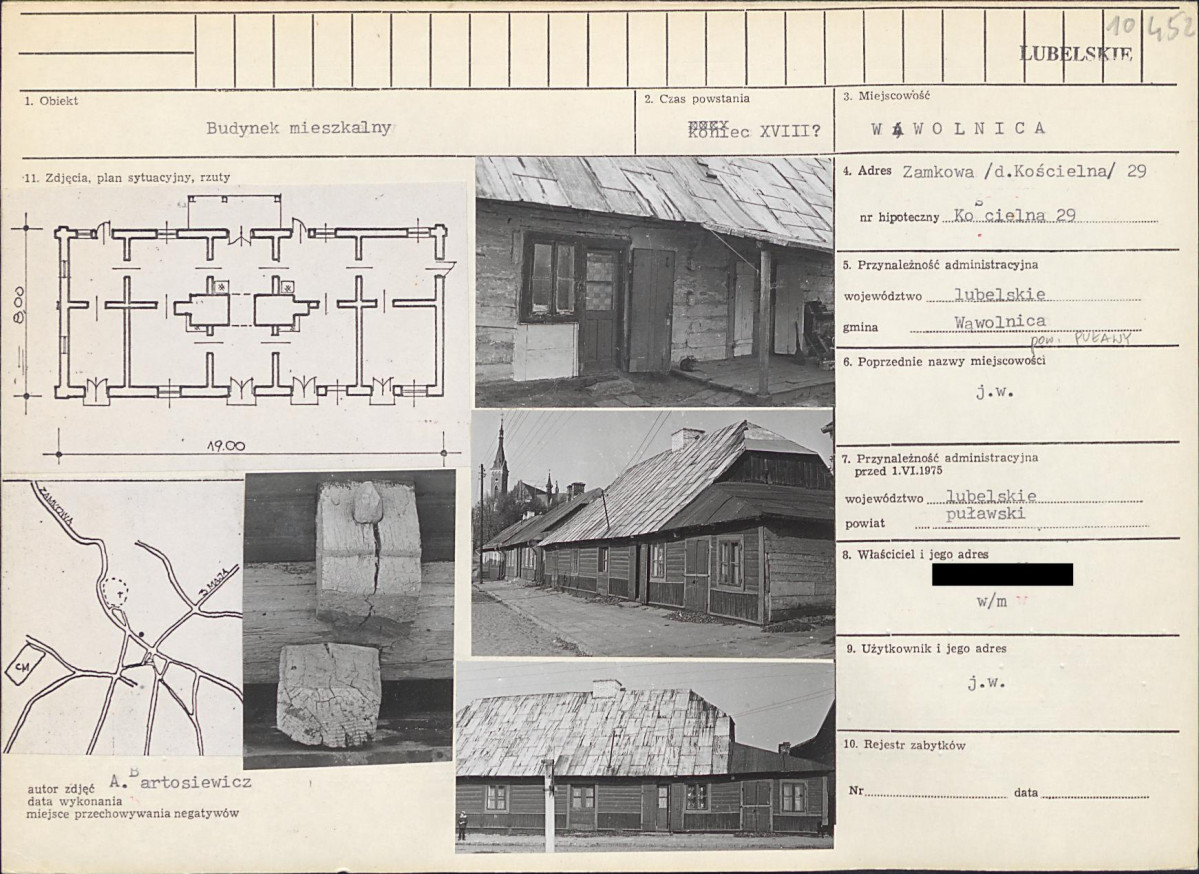 10 452
LUBELSKIE
1. Obiekt
Budynek mieszkalny
2. Czas powstania
Koniec XVIII?
3. Miejscowość
WĄWOLNICA
11. Zdjęcia, plan sytuacyjny, rzuty
8.00
19.00
ZAMKOWA
CM
autor zdjęć A. Bartosiewicz
data wykonania
miejsce przechowywania negatywów
4. Adres Zamkowa /d.Kościelna/ 29
nr hipoteczny Kościelna 29
5. Przynależność administracyjna
województwo lubelskie
gmina Wąwolnica
pow. PUŁAWY
6. Poprzednie nazwy miejscowości
j.w.
7. Przynależność administracyjna
przed 1.VI.1975
województwo lubelskie
powiat puławski
8. Właściciel i jego adres
w/m
9. Użytkownik i jego adres
j.w.
10. Rejestr zabytków
Nr data